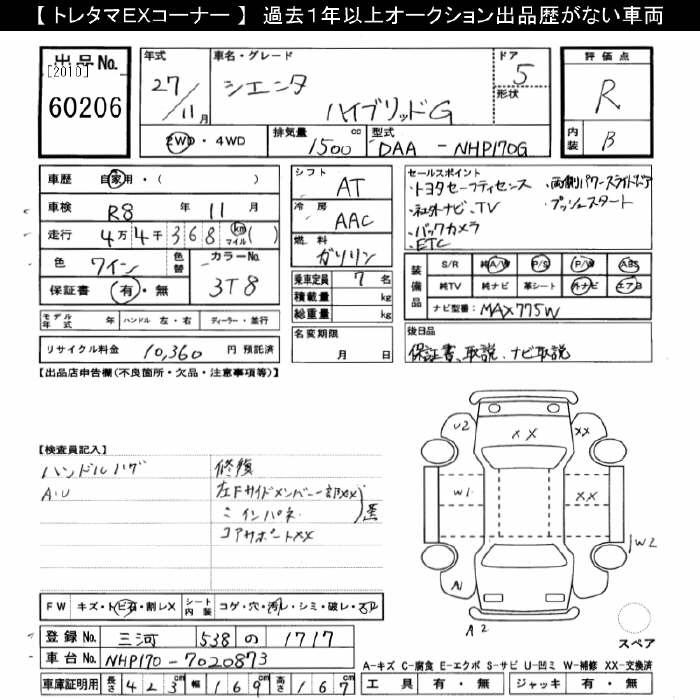 【 トレタマEXコーナー 】 過去1年以上オークション出品歴がない車両
出品No.
[2010]
60206
年式 27/11月
車名・グレード シエンタ ハイブリッドG
ドア 5
形状
2WD・4WD
排気量 1500 cc
型式 DAA - NHP170G
評価点 R
内装 B
車歴 自家用・( )
車検 R8 年 11 月
走行 4万4千368 km マイル ( )
色 ワイン 色替 カラーNo. 3T8
保証書 有・無
モデル年式 年 ハンドル 左・右 ディーラー・並行
リサイクル料金 10,360 円 預託済
シフト AT
冷房 AAC
燃料 ガソリン
乗車定員 7 名
積載量 kg
総重量 kg
名変期限 月 日
セールスポイント
・トヨタセーフティセンス ・両側パワースライドドア
・社外ナビ、TV ・プッシュスタート
・バックカメラ
・ETC
装備品
S/R 純A/W P/S P/W ABS
純TV 純ナビ 革シート 外ナビ エアB
ナビ型番: MAX775W
後日品
保証書、取説、ナビ取説
【出品店申告欄(不良箇所・欠品・注意事項等)】
【検査員記入】
ハンドルハゲ 修復
A・U 左Fサイドメンバー一部XX
ミ インパネ
コアサポートXX
U2 XX XX
W1 XX
W2
A1
A2
スペア
FW キズ・トビ石・割レX シート内装 コゲ・穴・汚レ・シミ・破レ・
登録No. 三河 538 の 1717
車台No. NHP170-7020873
車庫証明用 長さ 423cm 幅 169cm 高さ 167cm
A-キズ C-腐食 E-エクボ S-サビ U-凹ミ W-補修 XX-交換済
工具 有・無 ジャッキ 有・無